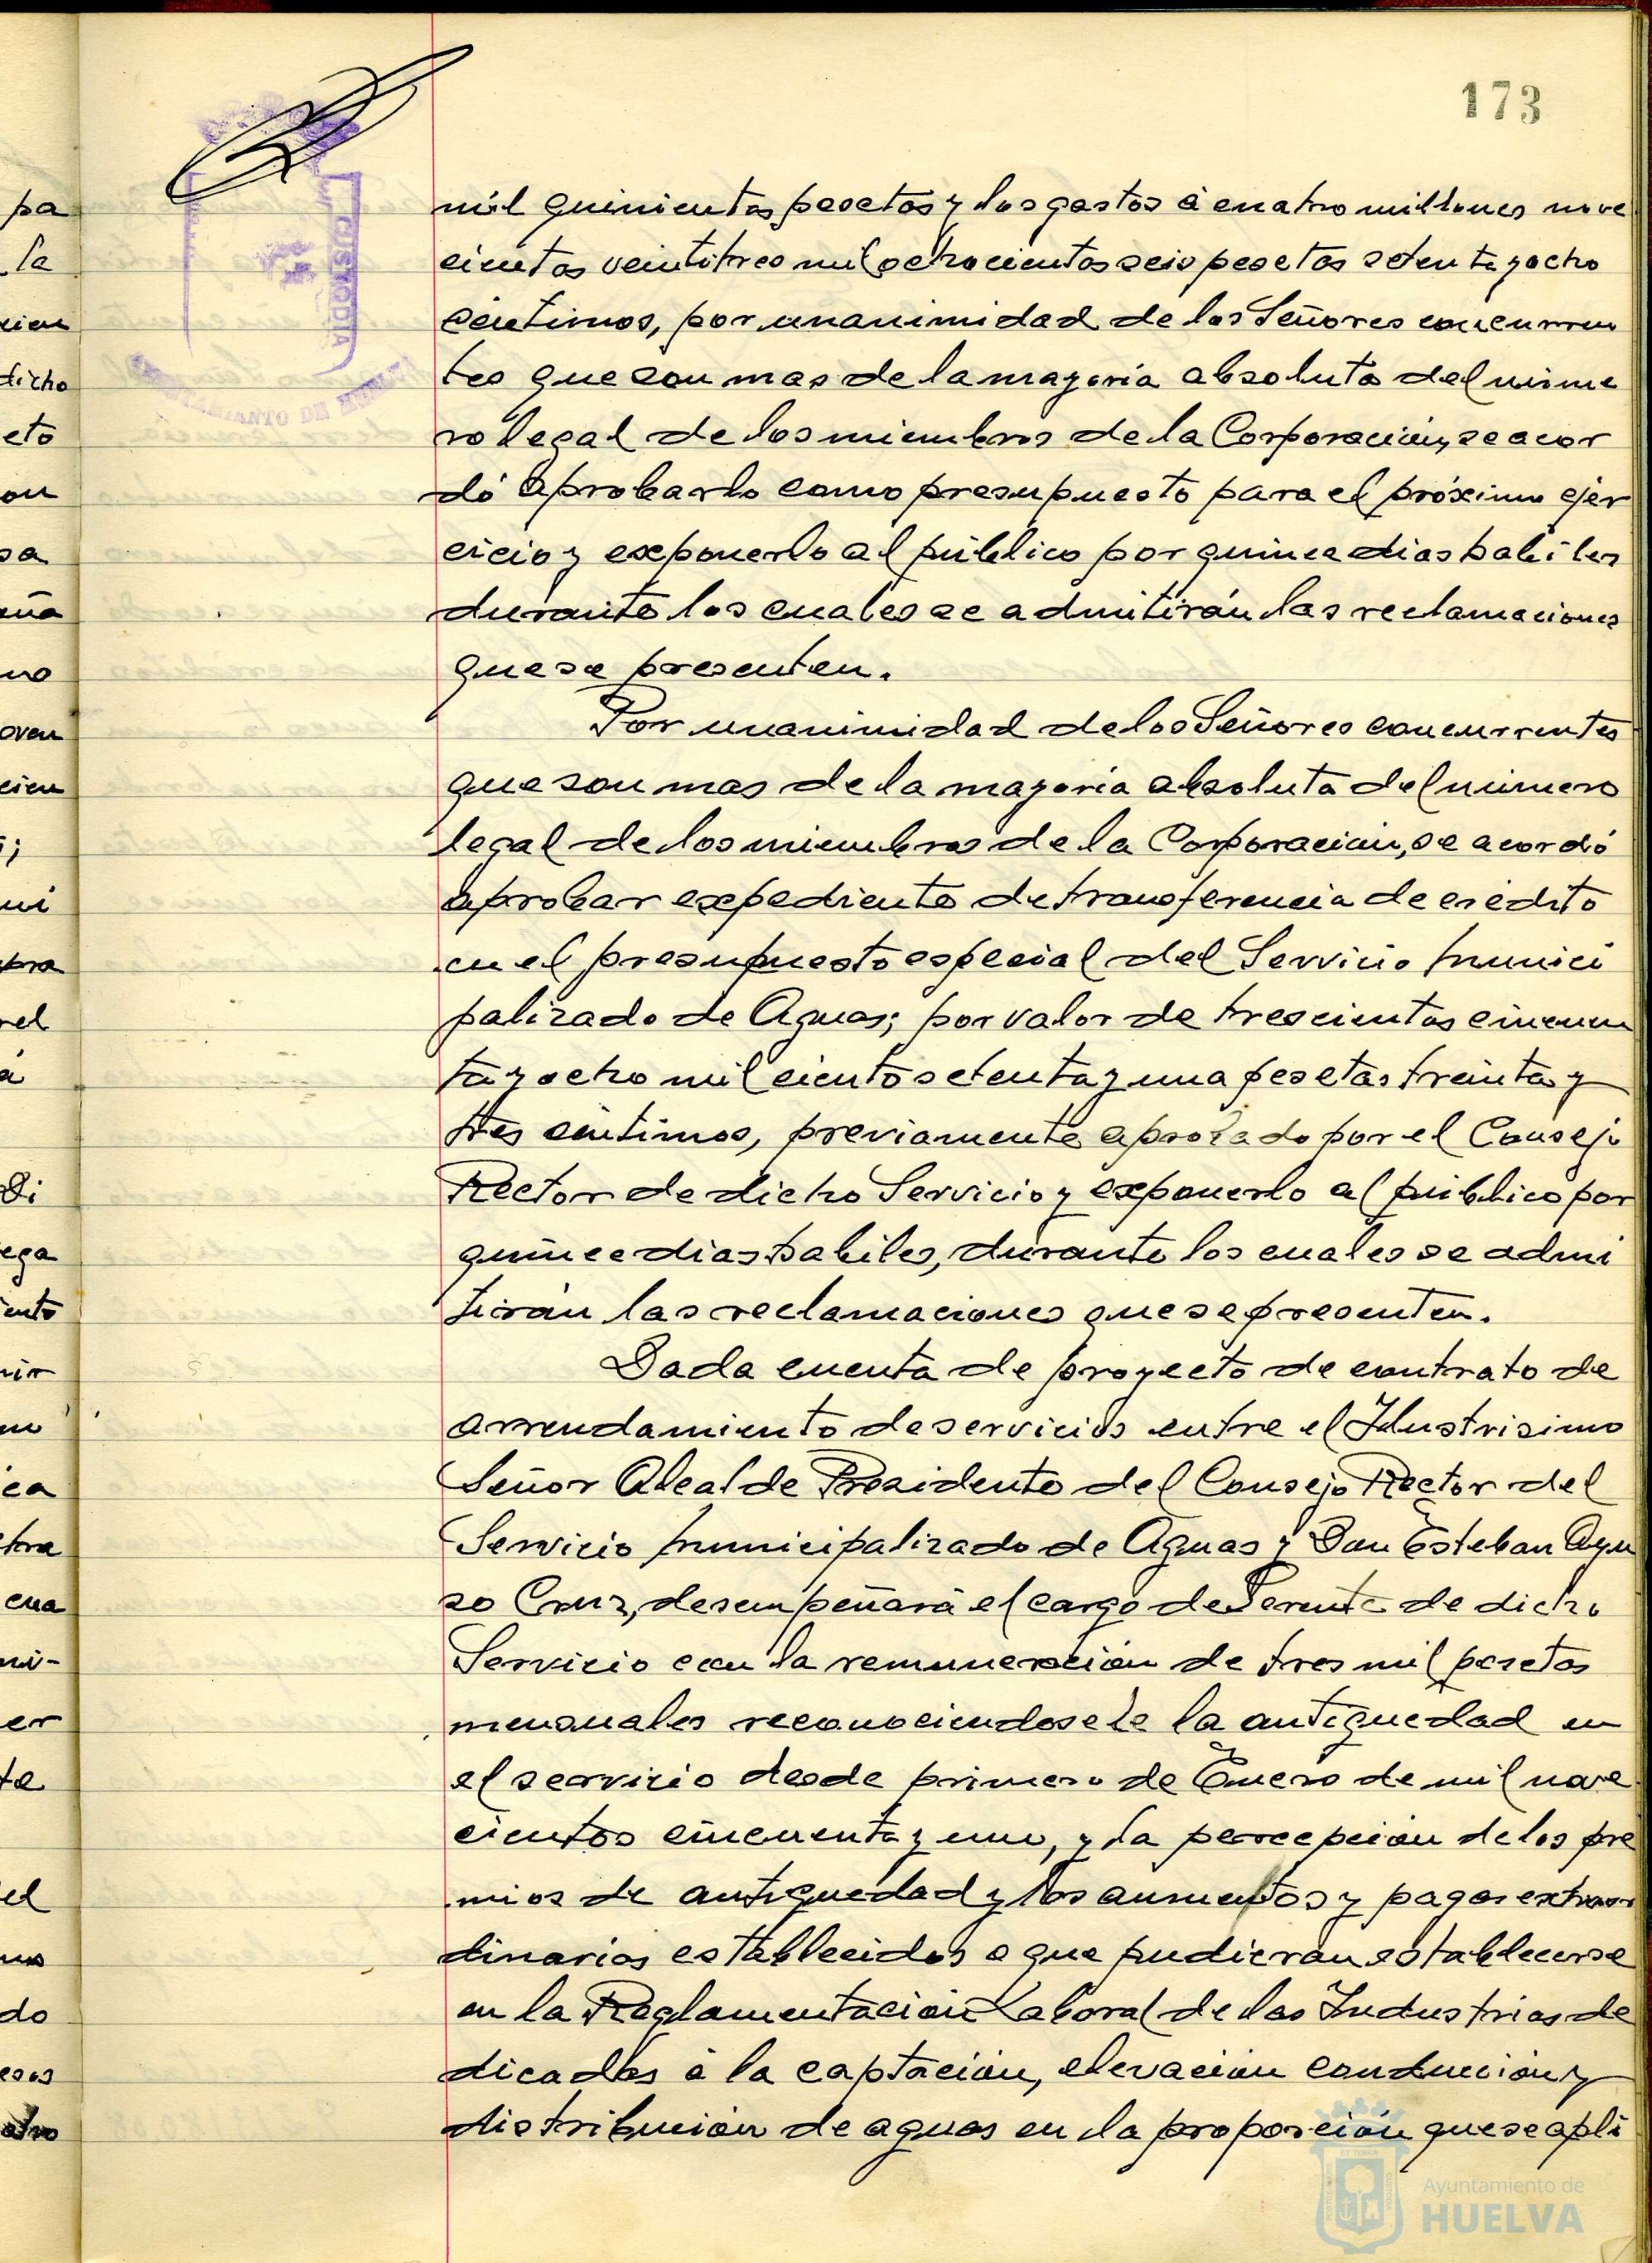 173
CUSTODIA
AYUNTAMIENTO DE HUELVA
mil quinientas pesetas y los gastos á cuatro millones nove
cientos veintitres mil ochocientos seis pesetas setenta y ocho
céntimos, por unanimidad de los Señores concurren
tes que son mas de la mayoria absoluta del núme
ro legal de los miembros de la Corporación, se acor
dó aprobarlo como presupuesto para el próximo ejer
cicio y exponerlo al público por quince dias habiles
durante los cuales se admitirán las reclamaciones
que se presenten.
Por unanimidad de los Señores concurrentes
que son mas de la mayoria absoluta del número
legal de los miembros de la Corporación, se acordó
aprobar expediente de transferencia de crédito
en el presupuesto especial del Servicio Munici
palizado de Aguas; por valor de trescientas cincuen
ta y ocho mil ciento setenta y una pesetas treinta y
tres céntimos, previamente aprobado por el Consejo
Rector de dicho Servicio y exponerlo al público por
quince dias habiles, durante los cuales se admi
tirán las reclamaciones que se presenten.
Dada cuenta de proyecto de contrato de
arrendamiento de servicios entre el Ilustrisimo
Señor Alcalde Presidente del Consejo Rector del
Servicio Municipalizado de Aguas y Don Esteban Ayu
so Cruz, desempeñará el cargo de Gerente de dicho
Servicio con la remuneración de tres mil pesetas
mensuales reconociendosele la antiguedad en
el servicio desde primero de Enero de mil nove
cientos cincuenta y uno, y la percepción de los pre
mios de antiguedad y los aumentos y pagas extraor
dinarias establecidos o que pudieran establecerse
en la Reglamentación Laboral de las Industrias de
dicadas á la captación, elevación conducción y
distribución de aguas en la proporción que se apli
Ayuntamiento de
HUELVA